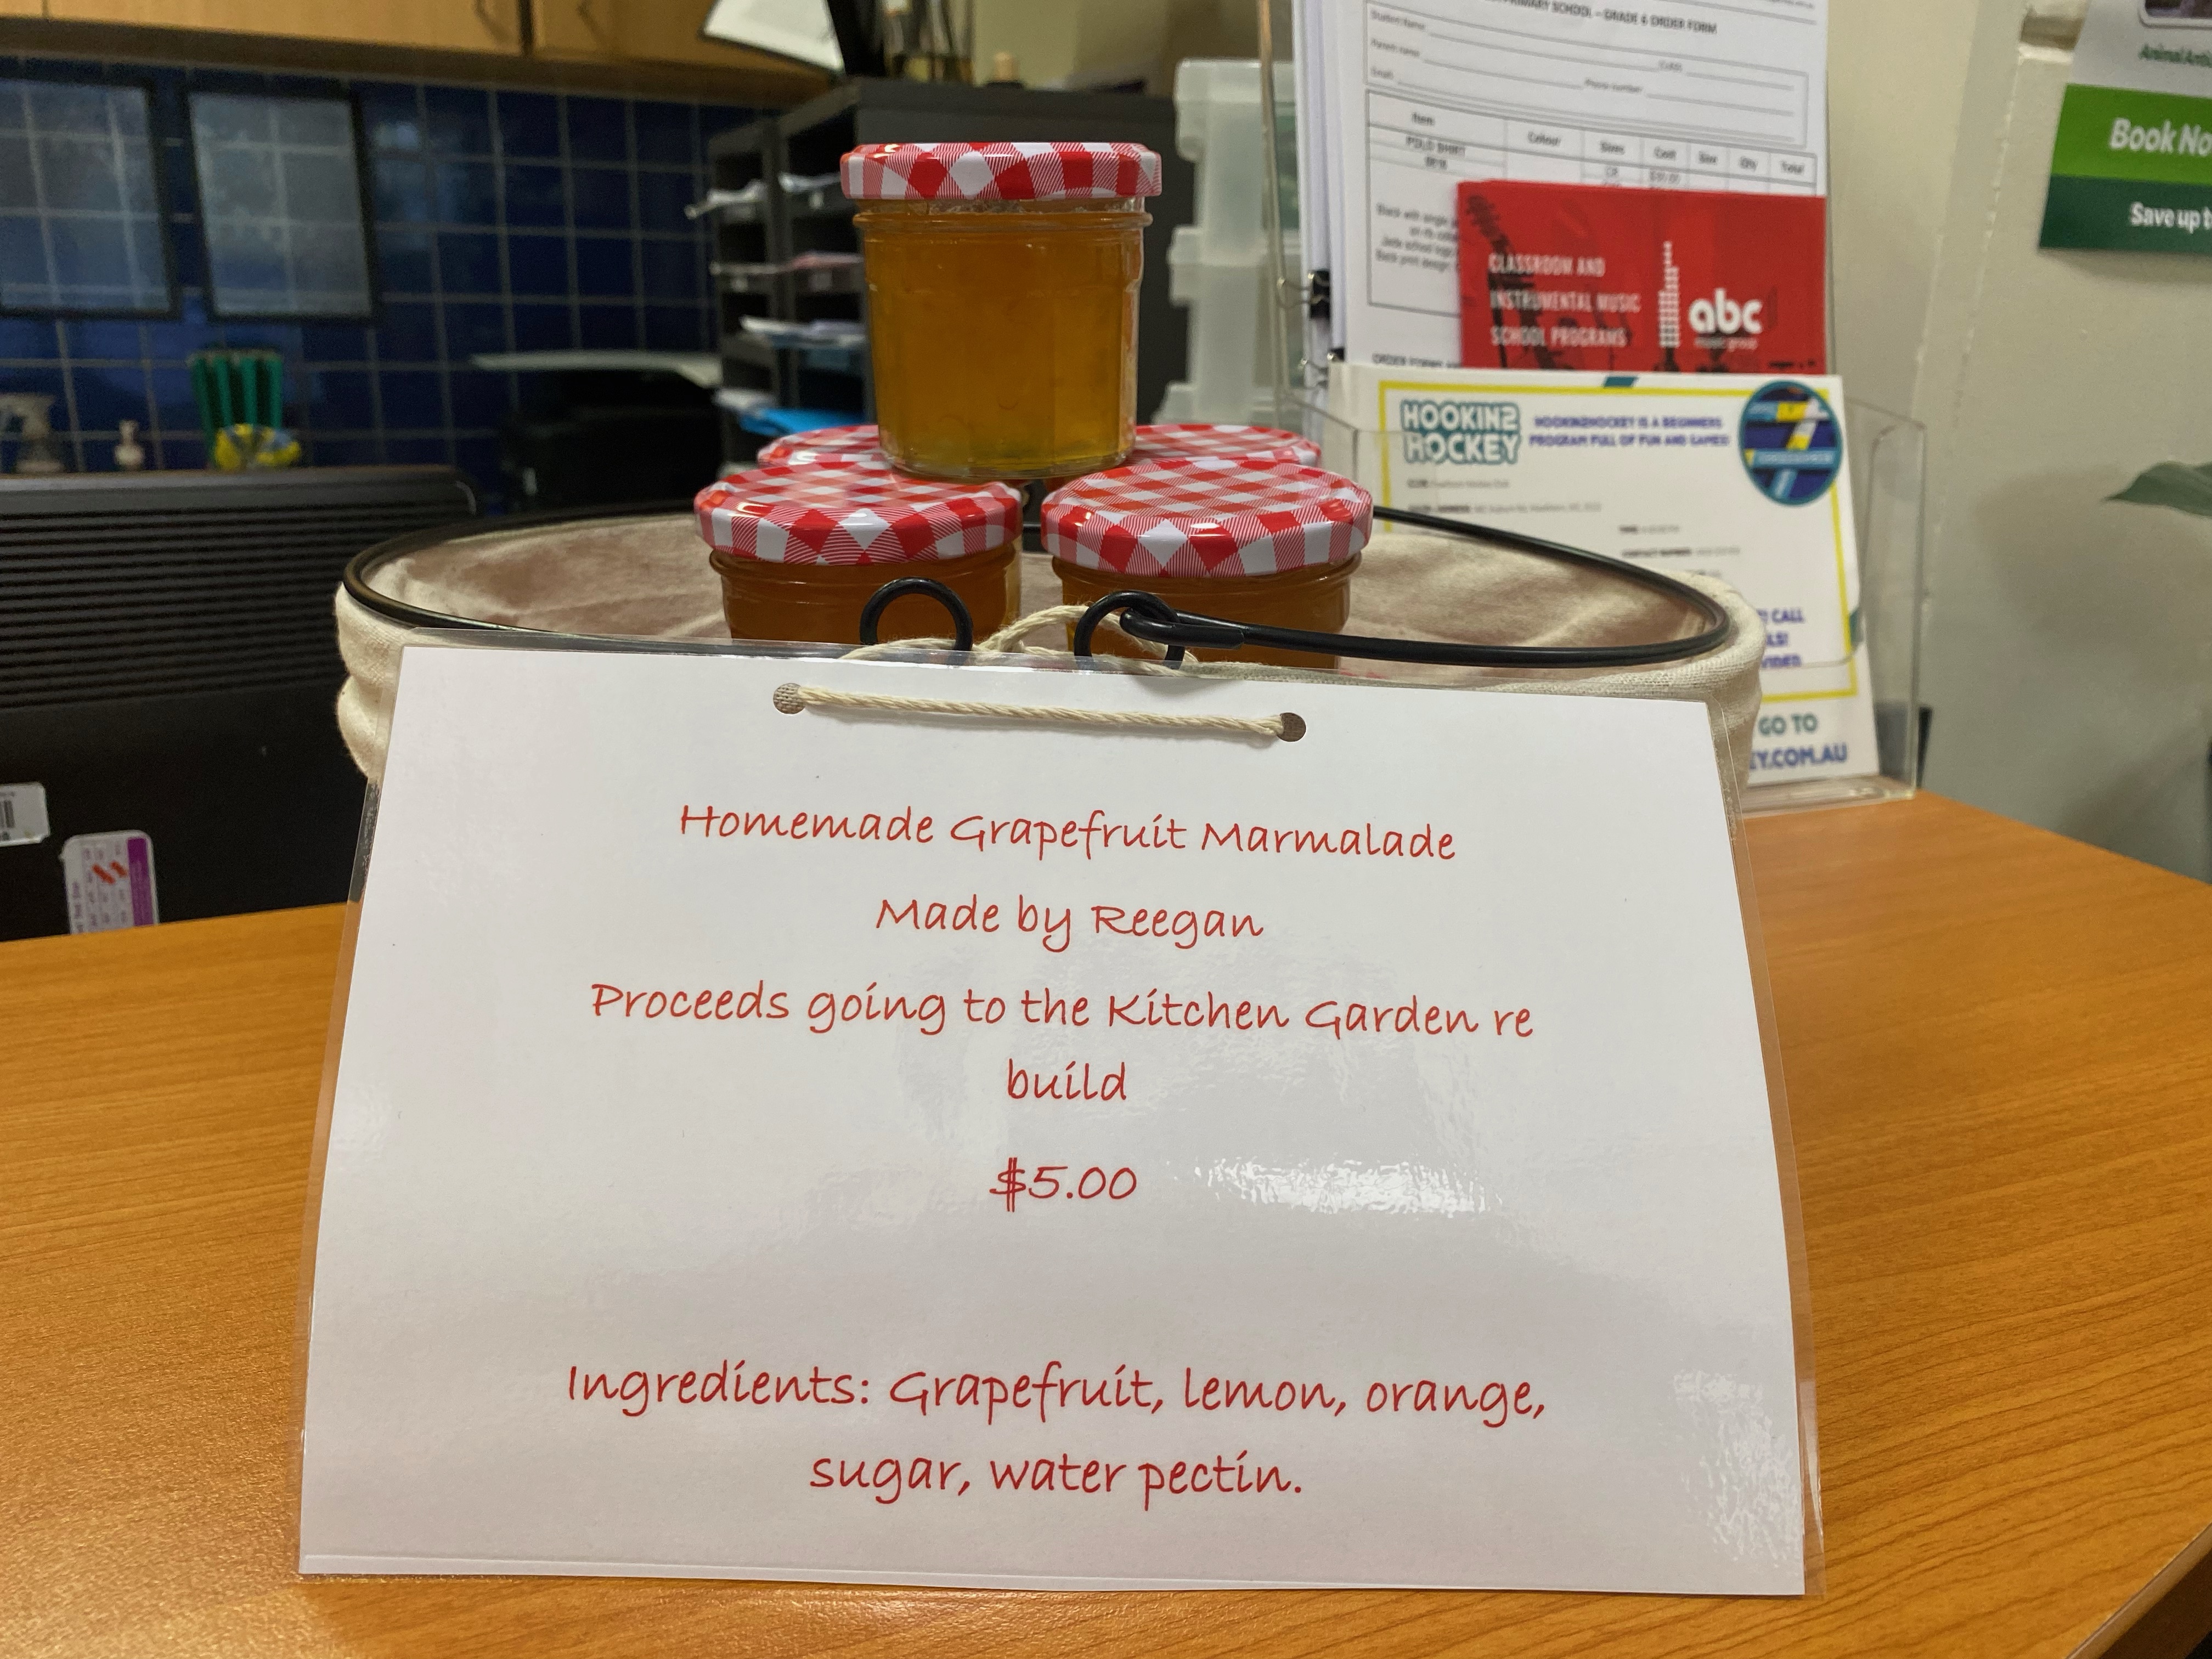 PRIMARY SCHOOL – GRADE 6 ORDER FORM
Student Name:
Parent name:
CLASS
Email:
Phone number:
Item
Colour
Sizes
Cost
Size
Qty
Total
POLO SHIRT
CLASSROOM AND
INSTRUMENTAL MUSIC
SCHOOL PROGRAMS
abc
music group
Book No
Save up t
HOOKIN2
HOCKEY
HOOKIN2HOCKEY IS A BEGINNERS
PROGRAM FULL OF FUN AND GAMES!
CALL
GO TO
EY.COM.AU
Homemade Grapefruit Marmalade
Made by Reegan
Proceeds going to the Kitchen Garden re
build
$5.00
Ingredients: Grapefruit, lemon, orange,
sugar, water pectin.